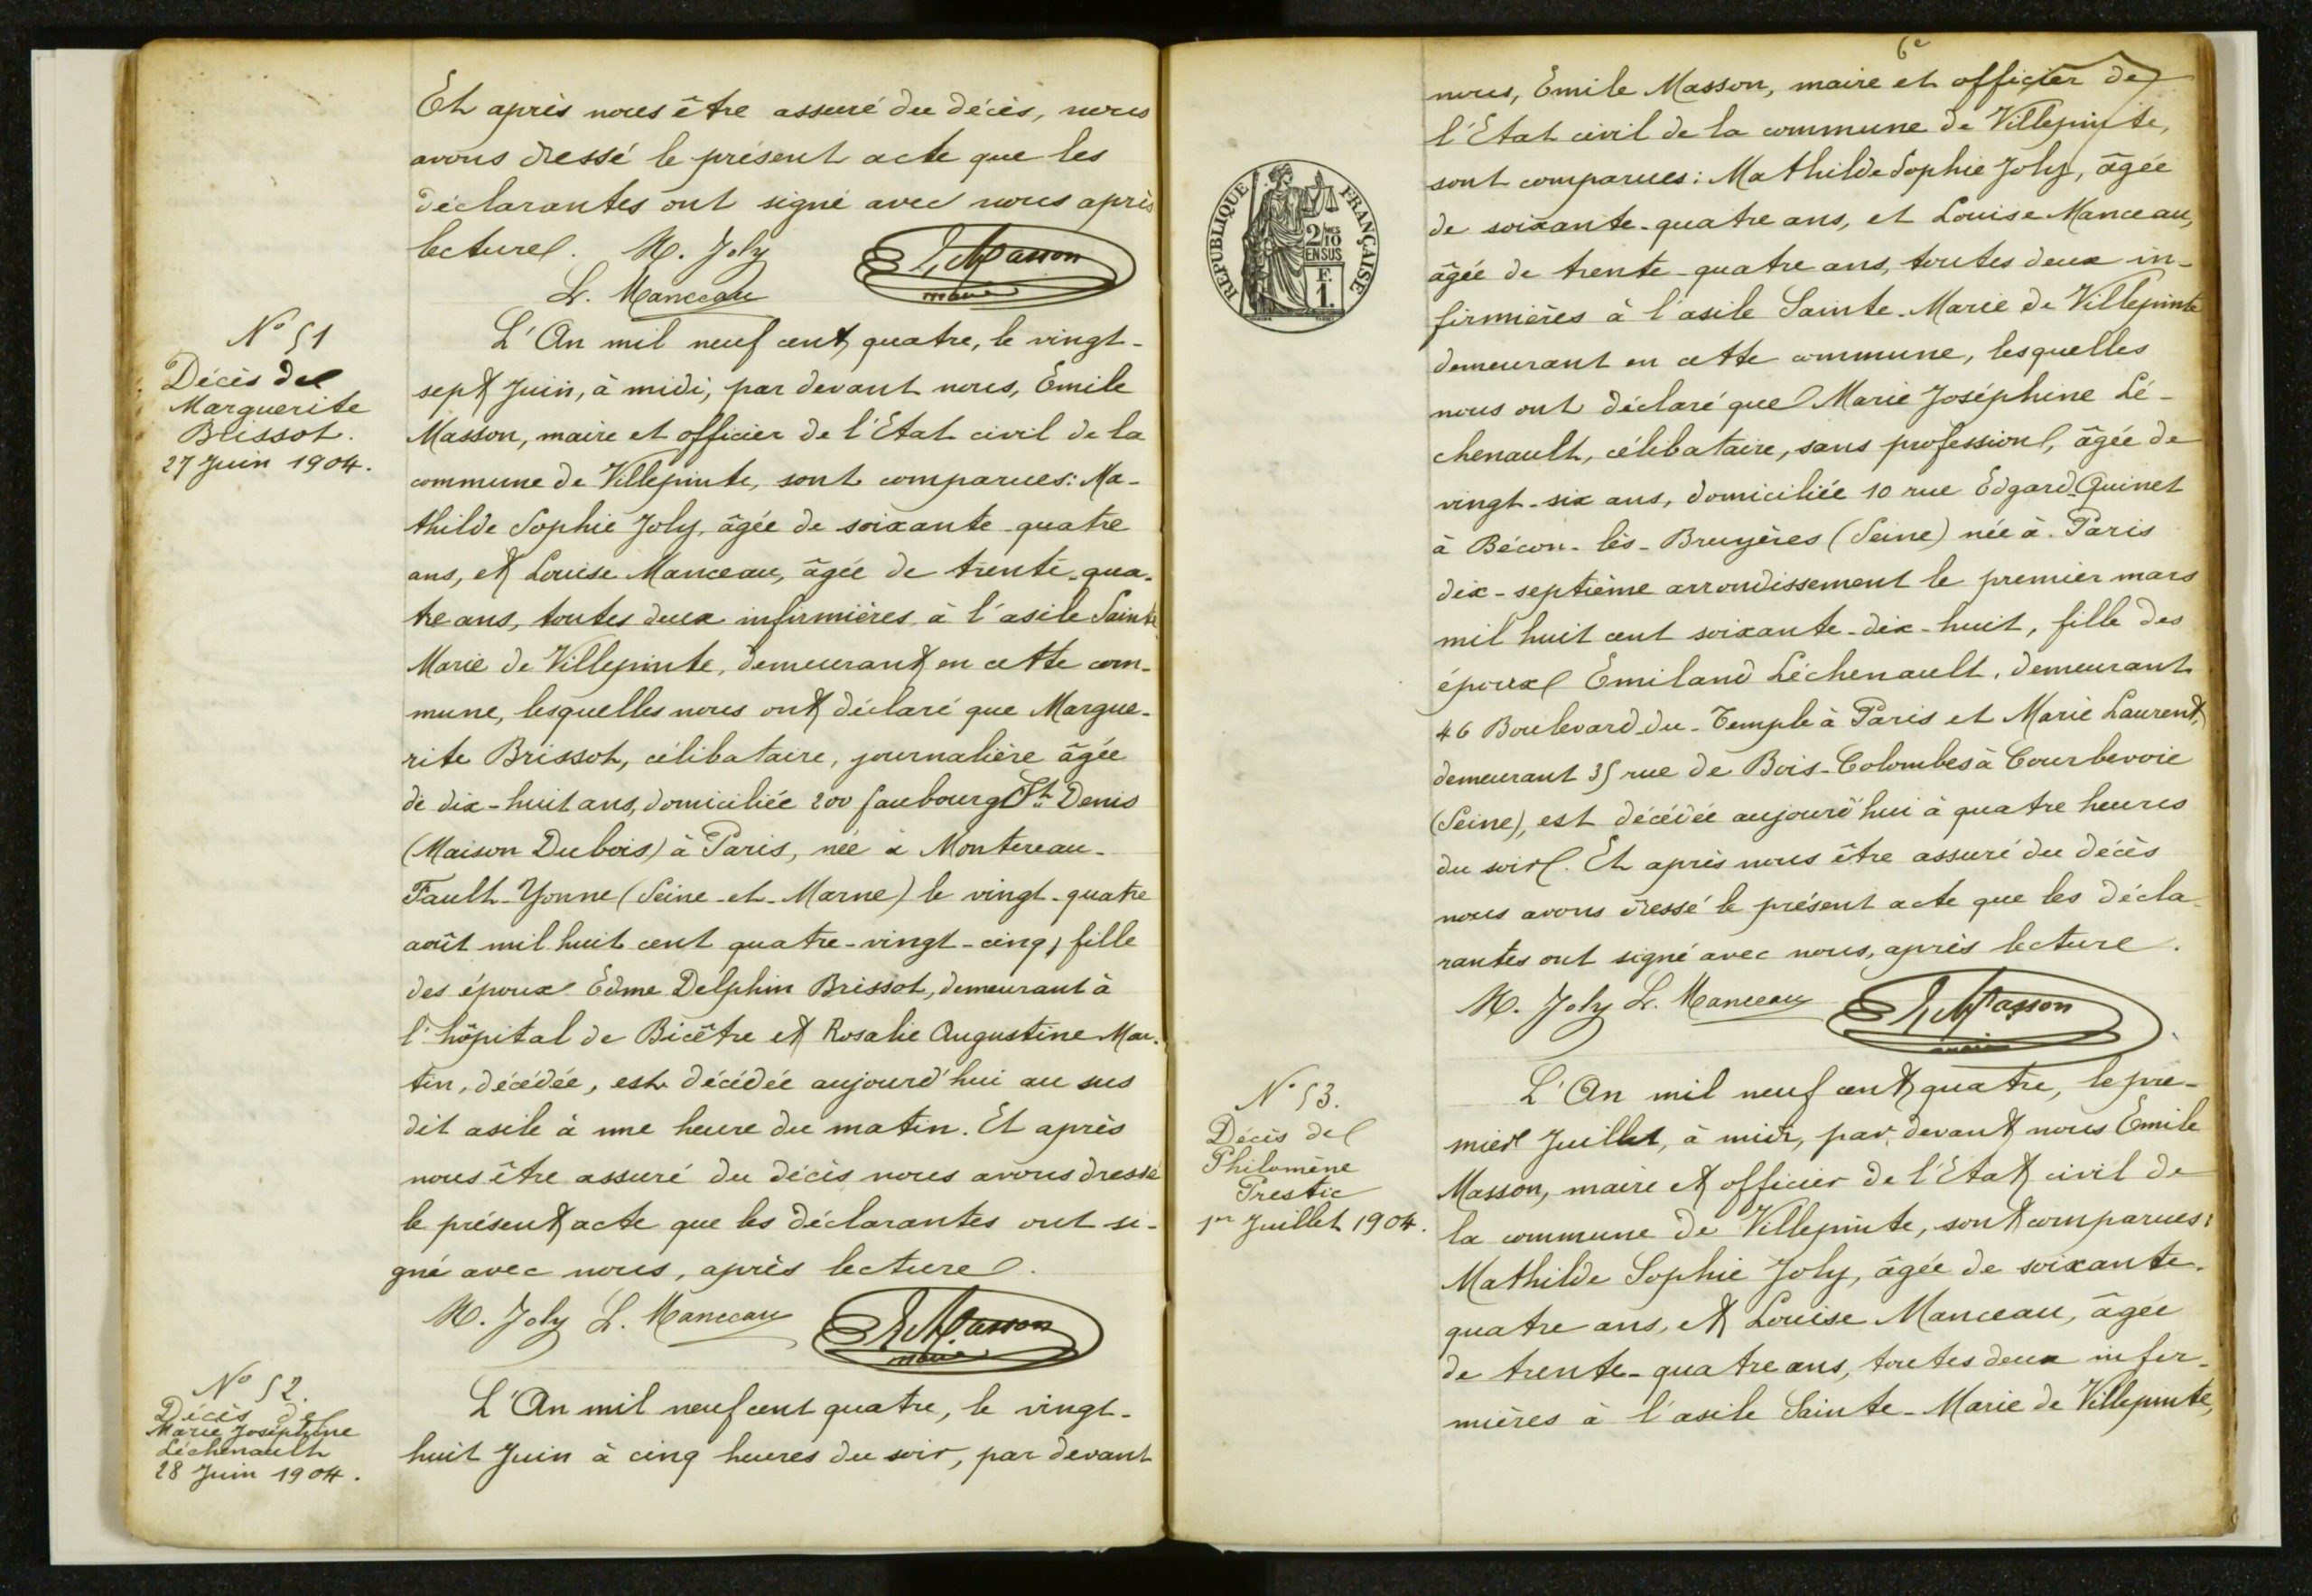 Et après nous être assuré du décès, nous
avons dressé le présent acte que les
déclarantes ont signé avec nous après
lecture. M. Joly E. Masson
L. Manceau maire
N° 51
Décès de
Marguerite
Brissot.
27 Juin 1904.
L'An mil neuf cent quatre, le vingt-
sept Juin, à midi, par devant nous, Emile
Masson, maire et officier de l'Etat civil de la
commune de Villepinte, sont comparues: Ma-
thilde Sophie Joly, âgée de soixante-quatre
ans, et Louise Manceau, âgée de trente-qua-
tre ans, toutes deux infirmières à l'asile Sainte
Marie de Villepinte, demeurant en cette com-
mune, lesquelles nous ont déclaré que Margue-
rite Brissot, célibataire, journalière âgée
de dix-huit ans, domiciliée 200 faubourg St Denis
(Maison Dubois) à Paris, née à Montereau-
Fault-Yonne (Seine-et-Marne) le vingt-quatre
août mil huit cent quatre-vingt-cinq, fille
des époux Edme Delphin Brissot, demeurant à
l'hôpital de Bicêtre et Rosalie Augustine Mar-
tin, décédée, est décédée aujourd'hui au sus
dit asile à une heure du matin. Et après
nous être assuré du décès nous avons dressé
le présent acte que les déclarantes ont si-
gné avec nous, après lecture.
M. Joly L. Manceau E. Masson
maire
N° 52.
Décès de
Marie Joséphine
Léchenault
28 Juin 1904.
L'An mil neuf cent quatre, le vingt-
huit Juin à cinq heures du soir, par devant
6e
nous, Emile Masson, maire et officier de
l'Etat civil de la commune de Villepinte,
sont comparues: Mathilde Sophie Joly, âgée
de soixante-quatre ans, et Louise Manceau,
âgée de trente-quatre ans, toutes deux in-
firmières à l'asile Sainte-Marie de Villepinte
demeurant en cette commune, lesquelles
nous ont déclaré que Marie Joséphine Lé-
chenault, célibataire, sans profession, âgée de
vingt-six ans, domiciliée 10 rue Edgard-Quinet
à Bécon-lès-Bruyères (Seine) née à Paris
dix-septième arrondissement le premier mars
mil huit cent soixante-dix-huit, fille des
époux Emiland Léchenault, demeurant
46 Boulevard-du-Temple à Paris et Marie Laurent,
demeurant 35 rue de Bois-Colombes à Courbevoie
(Seine), est décédée aujourd'hui à quatre heures
du soir. Et après nous être assuré du décès
nous avons dressé le présent acte que les décla-
rantes ont signé avec nous, après lecture.
M. Joly L. Manceau E. Masson
maire
RÉPUBLIQUE FRANÇAISE
2/10 MES
EN SUS
F.
1.
N° 53.
Décès de
Philomène
Prestic
1er Juillet 1904.
L'An mil neuf cent quatre, le pre-
mier Juillet, à midi, par devant nous Emile
Masson, maire et officier de l'Etat civil de
la commune de Villepinte, sont comparues:
Mathilde Sophie Joly, âgée de soixante-
quatre ans, et Louise Manceau, âgée
de trente-quatre ans, toutes deux infir-
mières à l'asile Sainte-Marie de Villepinte,